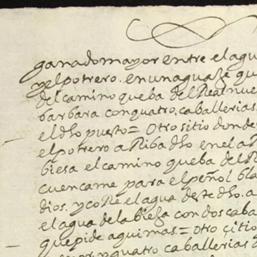 ganado mayor entre el agu
y el potrero. en un aguaxe qu
del camino que ba del Real nue
barbara con quatro caballerias
el dho puesto = Otro sitio donde
el potrero arriba dho en el a
biesa el camino que ba del
cuencame para el peñol bla
dios. y coxe el agua deste dho. a
el agua de la bieja con dos caba
que pide aqui mas = otro sitio
quatro caballerias